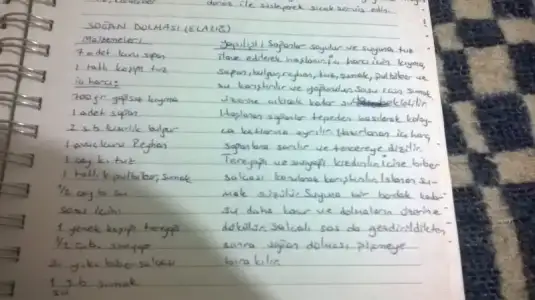 döner ile süsleyerek sıcak servis edin.
SOĞAN DOLMASI (ELAZIĞ)
Malzemeler:
7 adet kuru soğan
1 tatlı kaşığı tuz
iç harcı:
700 gr yağlısız kıyma
1 adet soğan
2 s.b. bulgur
1 avuç kuru Reyhan
1 çay k. tuz
1 tatlı k. pulbiber, sumak
1/2 çay b. su
Sosu için:
1 yemek kaşığı tereyağ
1/2 ç.b. sıvıyağ
2 y.k. biber salçası
1 s.b. sumak
su
Yapılışı: Soğanlar soyulur ve suyuna tuz
ilave edilerek haşlanır. İç harcı için kıyma,
soğan, bulgur, reyhan, tuz, sumak, pulbiber ve
su karıştırılır ve yoğurulur. Sosu için sumak
üzerine kadar su bekletilir.
Haşlanan soğanlar tepeden basılarak kolay-
ca katlarına ayrılır. Hazırlanan iç harç,
soğanlara sarılır ve tencereye dizilir.
Tereyağı ve sıvıyağ kızdırılır, içine biber
salçası konularak karıştırılır. Islanan su-
mak süzülür. Suyuna bir bardak kadar
su daha konur ve dolmaların üzerine
dökülür. Salçalı sos da gezdirildikten
sonra soğan dolması pişmeye
bırakılır.